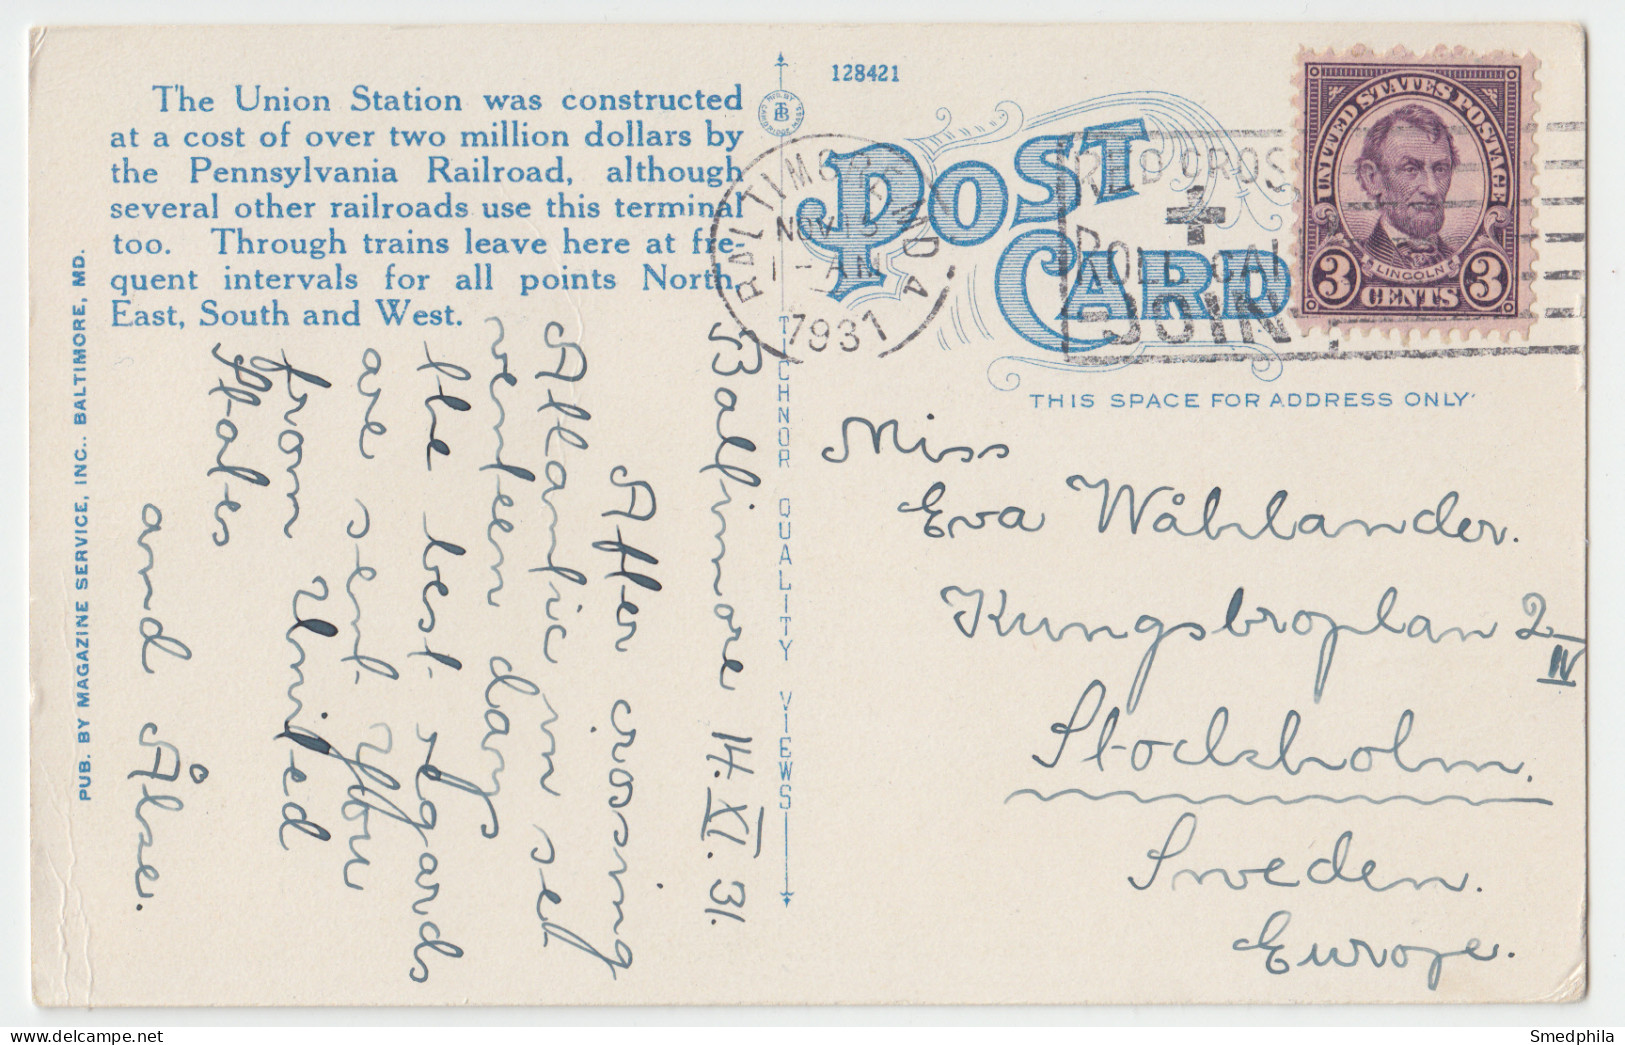 The Union Station was constructed
at a cost of over two million dollars by
the Pennsylvania Railroad, although
several other railroads use this terminal
too. Through trains leave here at fre-
quent intervals for all points North,
East, South and West.
PUB. BY MAGAZINE SERVICE, INC., BALTIMORE, MD.
Baltimore 14.XI.31.
After crossing
Atlantic in se
venteen days
the best regards
are sent You
from United
States
and Ålse.
TICHNOR QUALITY VIEWS
128421
POST
CARD
THIS SPACE FOR ADDRESS ONLY
BALTIMORE MD 4
NOV 15
1-AM
1931
RED CROSS
ROLL CAL
JOIN
UNITED STATES POSTAGE
LINCOLN
3 CENTS 3
Miss
Eva Wåhlander.
Kungsbroplan 2 IV
Stockholm.
Sweden.
Europe.
Smedphila